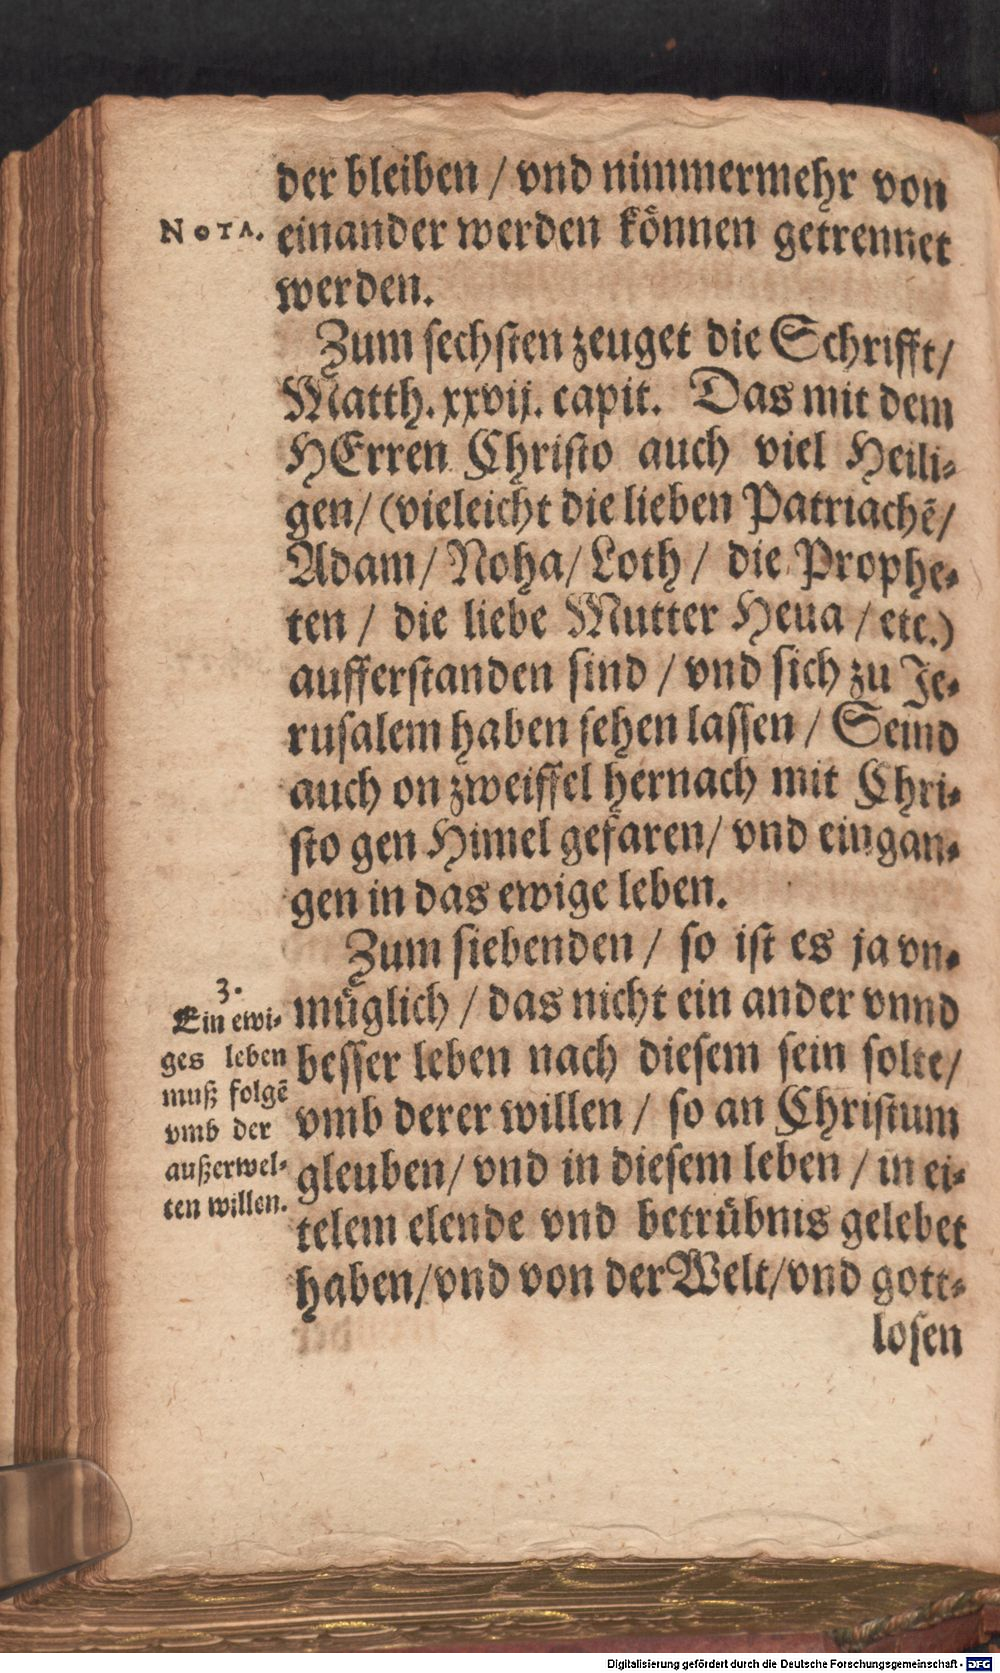 der bleiben / vnd nimmermehr von
NOTA.
einander werden können getrennet
werden.
Zum sechsten zeuget die Schrifft /
Matth. xxvij. capit. Das mit dem
HErren Christo auch viel Heili-
gen / (vieleicht die lieben Patriachẽ /
Adam / Noha / Loth / die Prophe-
ten / die liebe Mutter Heua / etc.)
aufferstanden sind / vnd sich zu Je-
rusalem haben sehen lassen / Seind
auch on zweiffel hernach mit Chri-
sto gen Himel gefaren / vnd eingan-
gen in das ewige leben.
Zum siebenden / so ist es ja vn-
müglich / das nicht ein ander vnnd
besser leben nach diesem sein solte /
vmb derer willen / so an Christum
gleuben / vnd in diesem leben / in ei-
telem elende vnd betrübnis gelebet
haben / vnd von der Welt / vnd gott-
losen
3.
Ein ewi-
ges leben
muß folgẽ
vmb der
außerwel-
ten willen.
Digitalisierung gefördert durch die Deutsche Forschungsgemeinschaft - DFG